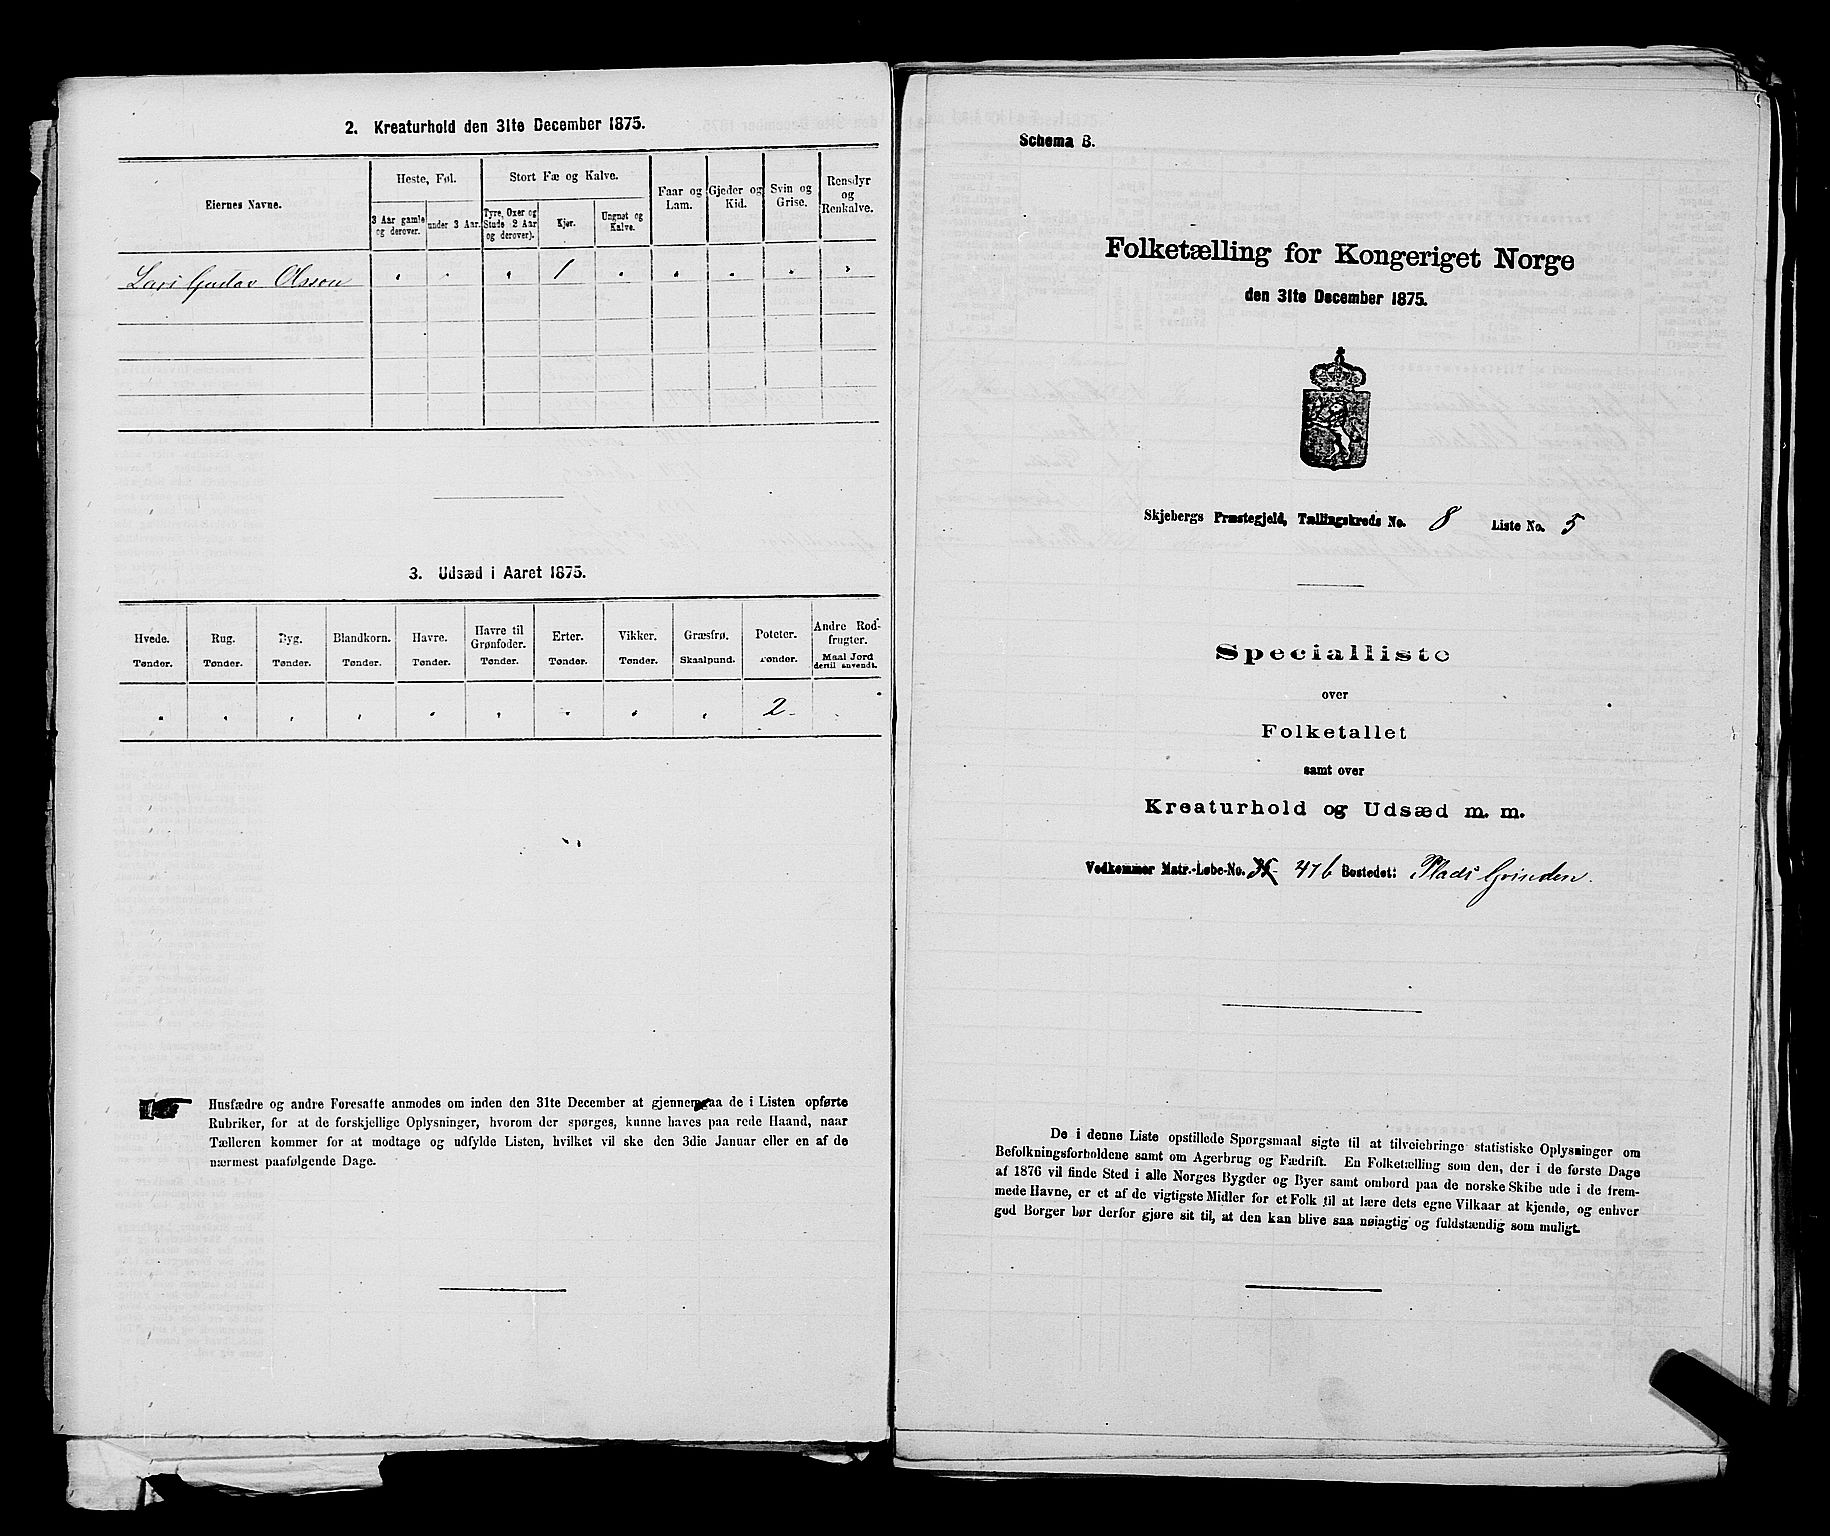 2. Kreaturhold den 31te December 1875.
Eiernes Navne.
Heste, Føl.
Stort Fæ og Kalve.
Faar og Lam.
Gjeder og Kid.
Svin og Grise.
Rensdyr og Renkalve.
3 Aar gamle og derover.
under 3 Aar.
Tyre, Oxer og Stude 2 Aar og derover).
Kjør.
Ungnøt og Kalve.
Lars Gustav Olsson " " " 1 " " " " "
3. Udsæd i Aaret 1875.
Hvede. Rug. Byg. Blandkorn. Havre. Havre til Grønfoder. Erter. Vikker. Græsfrø. Poteter. Andre Rodfrugter.
Tønder. Tønder. Tønder. Tønder. Tønder. Tønder. Tønder. Tønder. Skaalpund. Tønder. Maal Jord dertil anvendt.
" " " " " " " " " 2 "
Husfædre og andre Foresatte anmodes om inden den 31te December at gjennemgaa de i Listen opførte
Rubriker, for at de forskjellige Oplysninger, hvorom der spørges, kunne haves paa rede Haand, naar
Tælleren kommer for at modtage og udfylde Listen, hvilket vil ske den 3die Januar eller en af de
nærmest paafølgende Dage.
Schema B.
Folketælling for Kongeriget Norge
den 31te December 1875.
Skjebergs Præstegjeld, Tællingskreds No. 8 Liste No. 5
Specialliste
over
Folketallet
samt over
Kreaturhold og Udsæd m. m.
Vedkommer Matr.-Løbe-No. 47b Bostedet: Plads Grinden.
De i denne Liste opstillede Spørgsmaal sigte til at tilveiebringe statistiske Oplysninger om
Befolkningsforholdene samt om Agerbrug og Fædrift. En Folketælling som den, der i de første Dage
af 1876 vil finde Sted i alle Norges Bygder og Byer samt ombord paa de norske Skibe ude i de frem-
mede Havne, er et af de vigtigste Midler for et Folk til at lære dets egne Vilkaar at kjende, og enhver
god Borger bør derfor gjøre sit til, at den kan blive saa nøiagtig og fuldstændig som muligt.